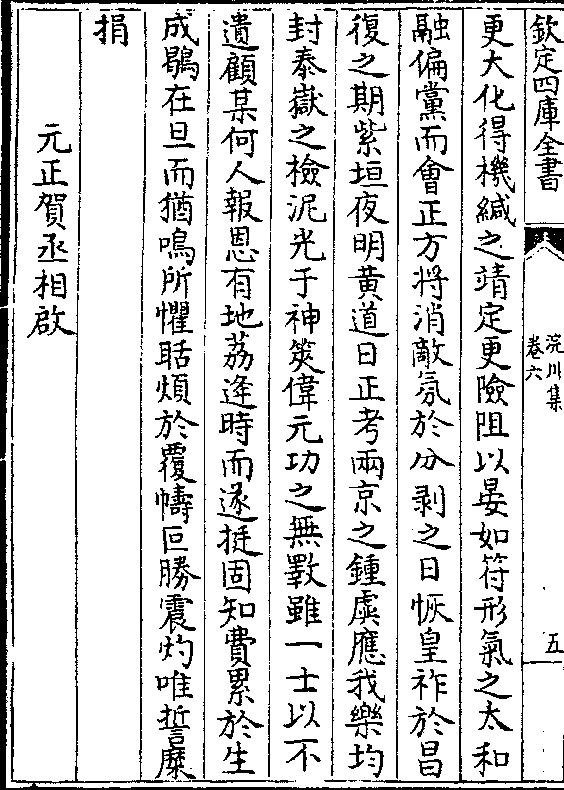 欽定四庫全書
浣川集
卷六
五
更大化得機緘之靖定更險阻以晏如符形氣之太和
融偏黨而會正方將消敵氛於分剥之日恢皇祚於昌
復之期紫垣夜明黄道日正考兩京之鍾虡應我樂均
封泰嶽之檢泥光于神筴偉元功之無斁雖一士以不
遺顧某何人報恩有地荔逢時而遂挺固知費累於生
成鶡在旦而猶鳴所懼聒煩於覆幬叵勝震灼唯誓糜
捐
元正賀丞相啟